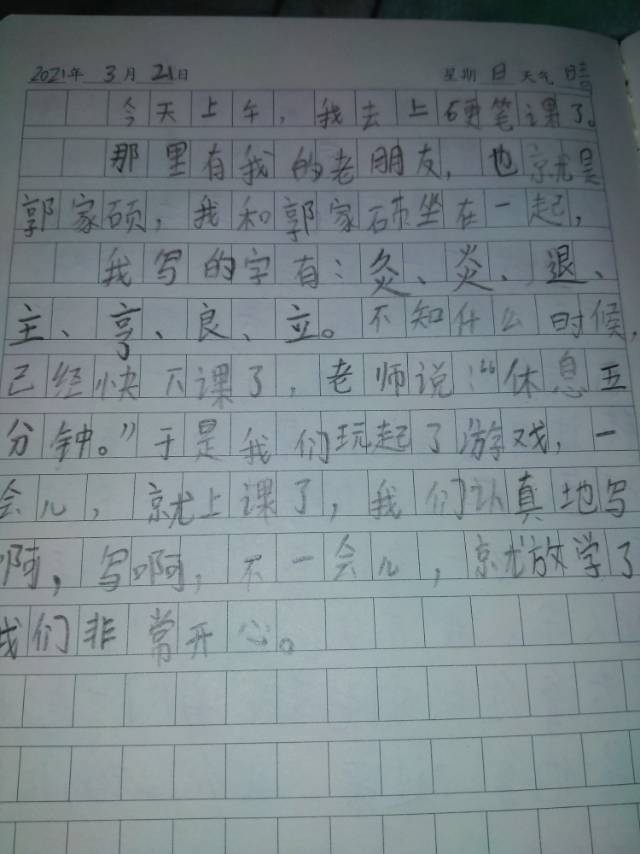 2021年 3月 21日 星期 日 天气 晴
今天上午，我去上硬笔课了。
那里有我的老朋友，也就是
郭家硕，我和郭家硕坐在一起，
我写的字有：灸、炎、退、
主、亨、良、立。不知什么时候，
已经快下课了，老师说：“休息五
分钟。”于是我们玩起了游戏，一
会儿，就上课了，我们认真地写
啊，写啊，不一会儿，就放学了
我们非常开心。